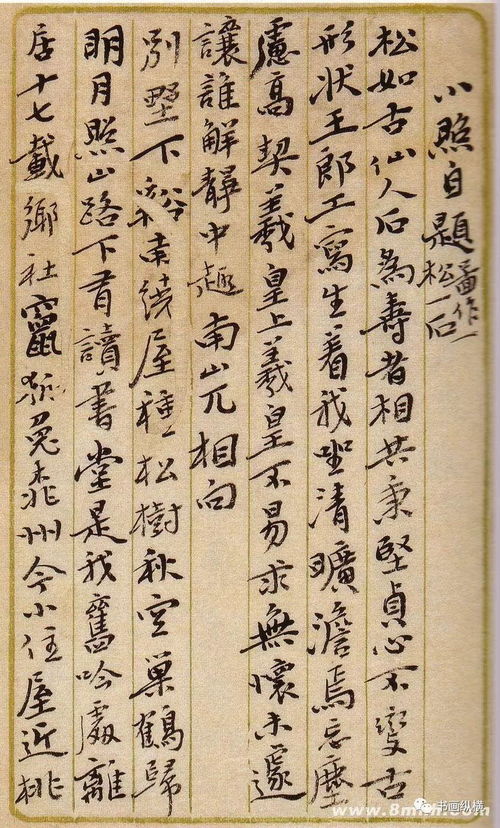 小照自題畫作一松一石
松如古仙人石為壽者相共秉堅貞心不變古
形状王郎工寫生着我坐清曠澹焉忘塵
慮高契羲皇上羲皇不易求無懷未遽
讓誰解靜中趣南山兀相向
别墅下谿南繞屋種松樹秋空巢鶴歸
明月照山路下有讀書堂是我舊吟處離
居十七載鄉社竄狐兔州今小住屋近桃
书画纵横